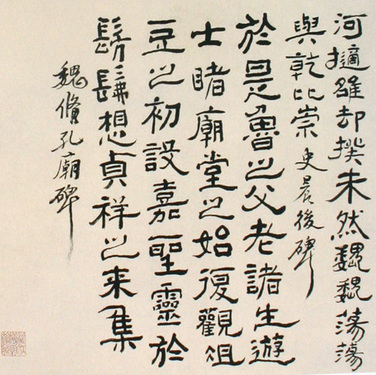 河摘雒却揆未然巍巍蕩蕩
與乾比崇 史晨後碑
於是魯之父老諸生遊
士睹廟堂之始復觀俎
豆之初設嘉聖靈於
髣髴想貞祥之来集
魏脩孔廟碑